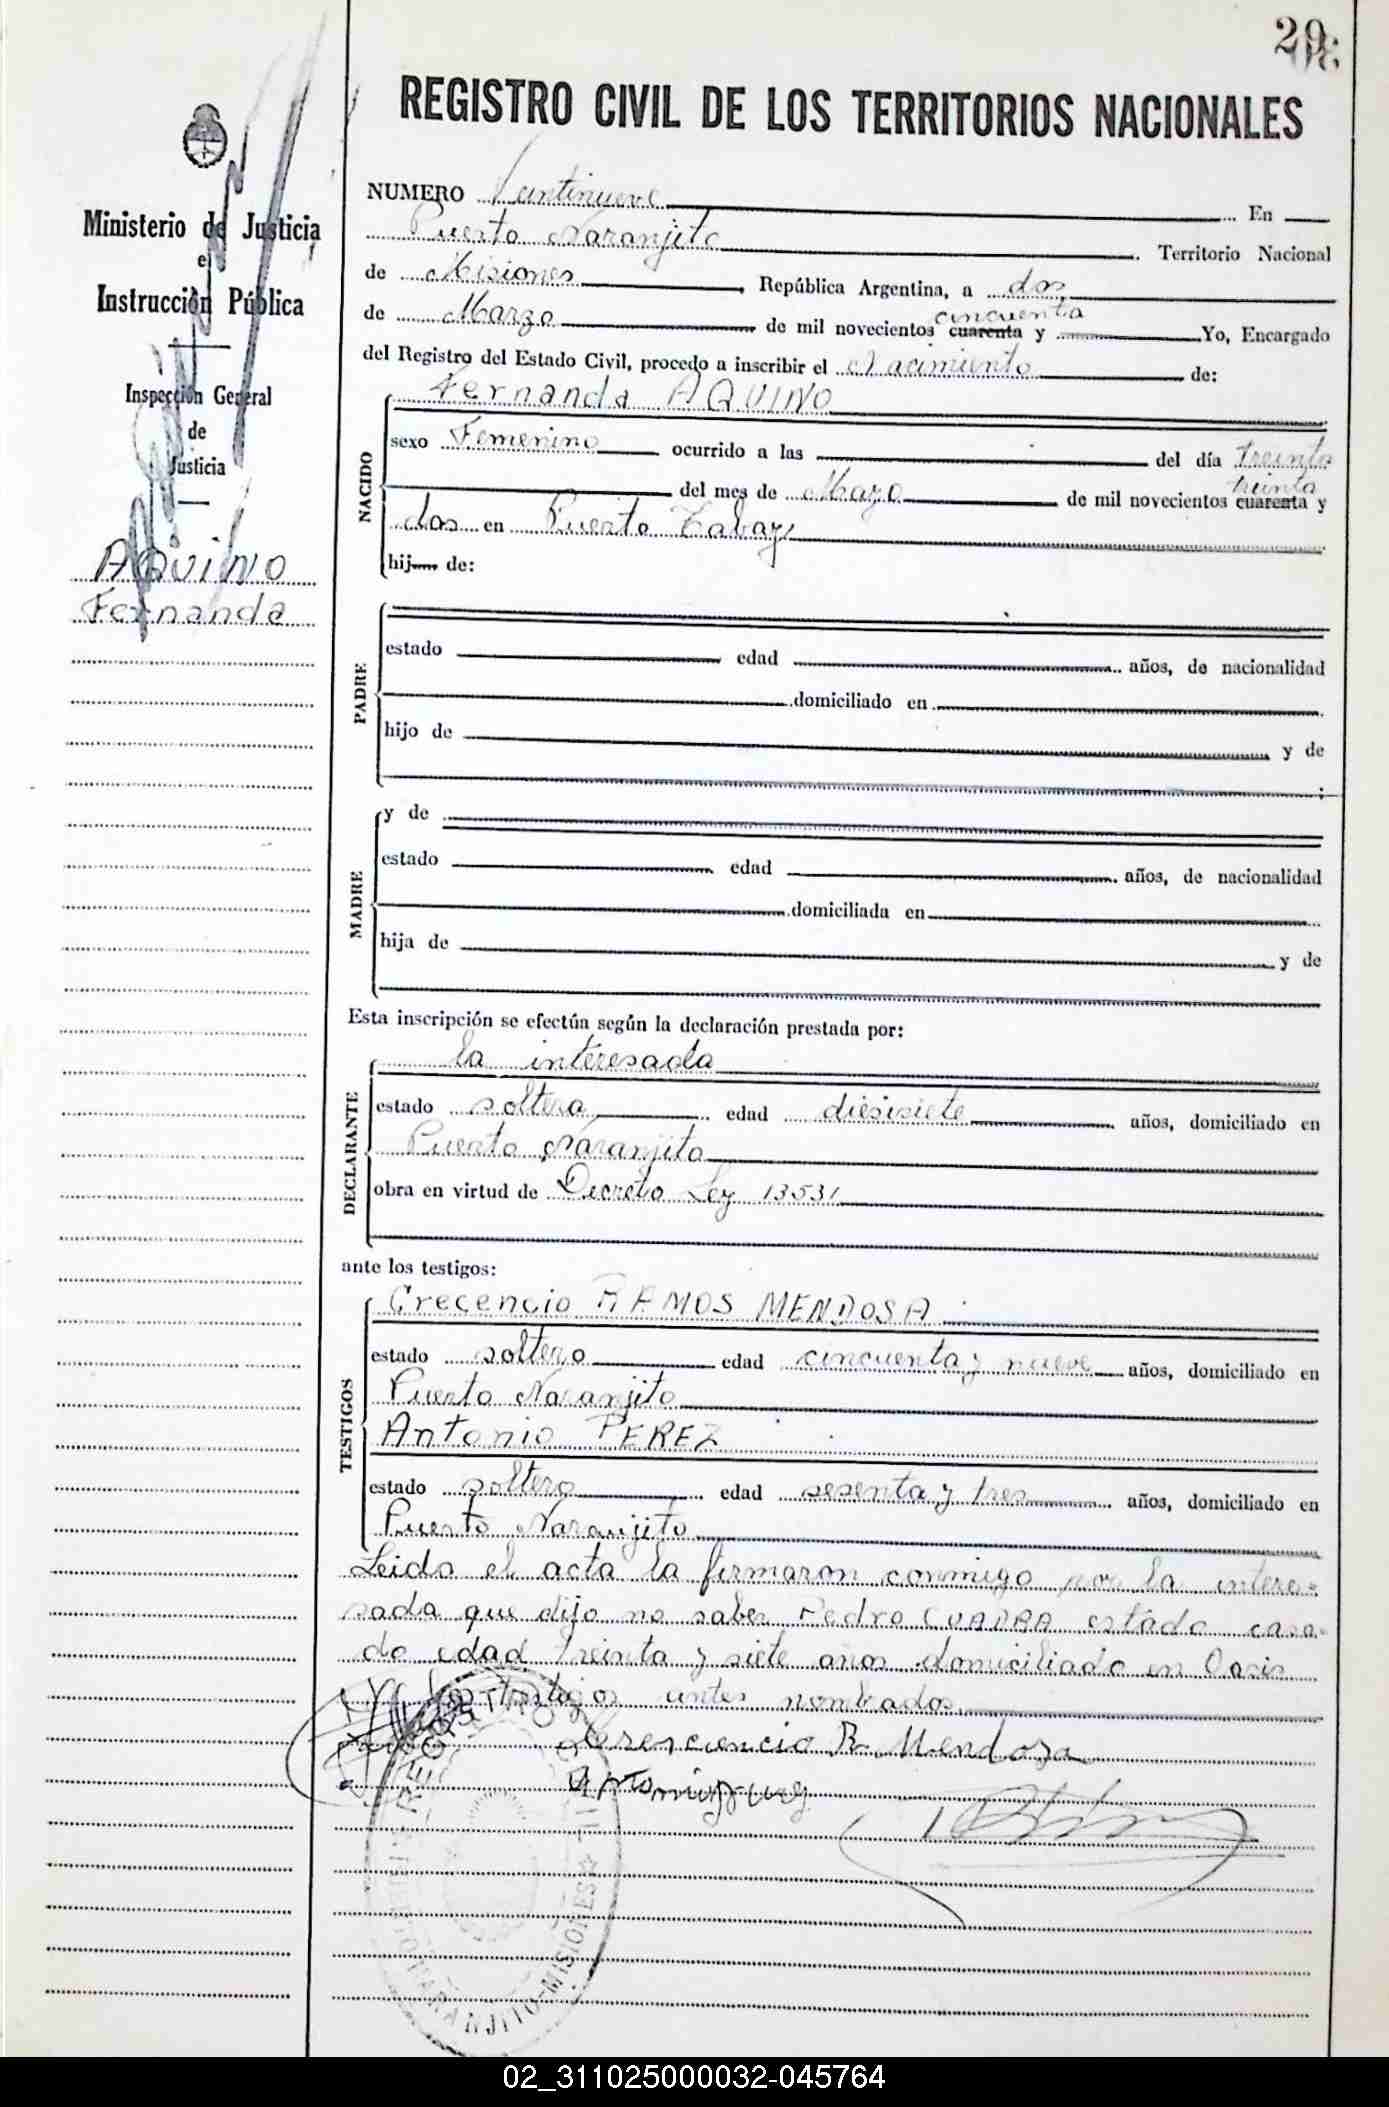 29
REGISTRO CIVIL DE LOS TERRITORIOS NACIONALES
Ministerio de Justicia
e
Instrucción Pública
Inspección General
de
Justicia
AQUINO
Fernanda
NUMERO Veintinueve En
Puerto Naranjito Territorio Nacional
de Misiones, República Argentina, a dos
de Marzo de mil novecientos cuarenta cincuenta y Yo, Encargado
del Registro del Estado Civil, procedo a inscribir el Nacimiento de:
NACIDO
Fernanda AQUINO
sexo Femenino ocurrido a las del día treinta
del mes de Mayo de mil novecientos cuarenta treinta y
dos en Puerto Tabay
hij de:
PADRE
estado edad años, de nacionalidad
domiciliado en
hijo de y de
MADRE
y de
estado edad años, de nacionalidad
domiciliada en
hija de y de
Esta inscripción se efectúa según la declaración prestada por:
DECLARANTE
la interesada
estado soltera edad diesisiete años, domiciliado en
Puerto Naranjito
obra en virtud de Decreto Ley 13531
ante los testigos:
TESTIGOS
Crecencio RAMOS MENDOSA
estado soltero edad cincuenta y nueve años, domiciliado en
Puerto Naranjito
Antonio PEREZ
estado soltero edad sesenta y tres años, domiciliado en
Puerto Naranjito
Leida el acta la firmaron conmigo por la intere-
sada que dijo no saber Pedro CUADRA estado casa-
do edad treinta y siete años domiciliado en Oasis
y los testigos antes nombrados
Crescencio R. Mendoza
NARANJITO-MISIONES
02_311025000032-045764